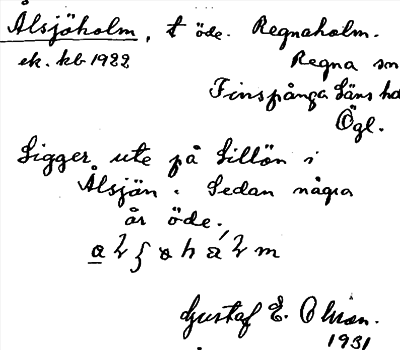 Ålsjöholm, t öde. Regnaholm.
ek. kb 1922
Regna sn
Finspånga läns hd
Ögl.
Ligger ute på Lillön i
Ålsjön. Sedan några
år öde.
Gustaf E.
1931